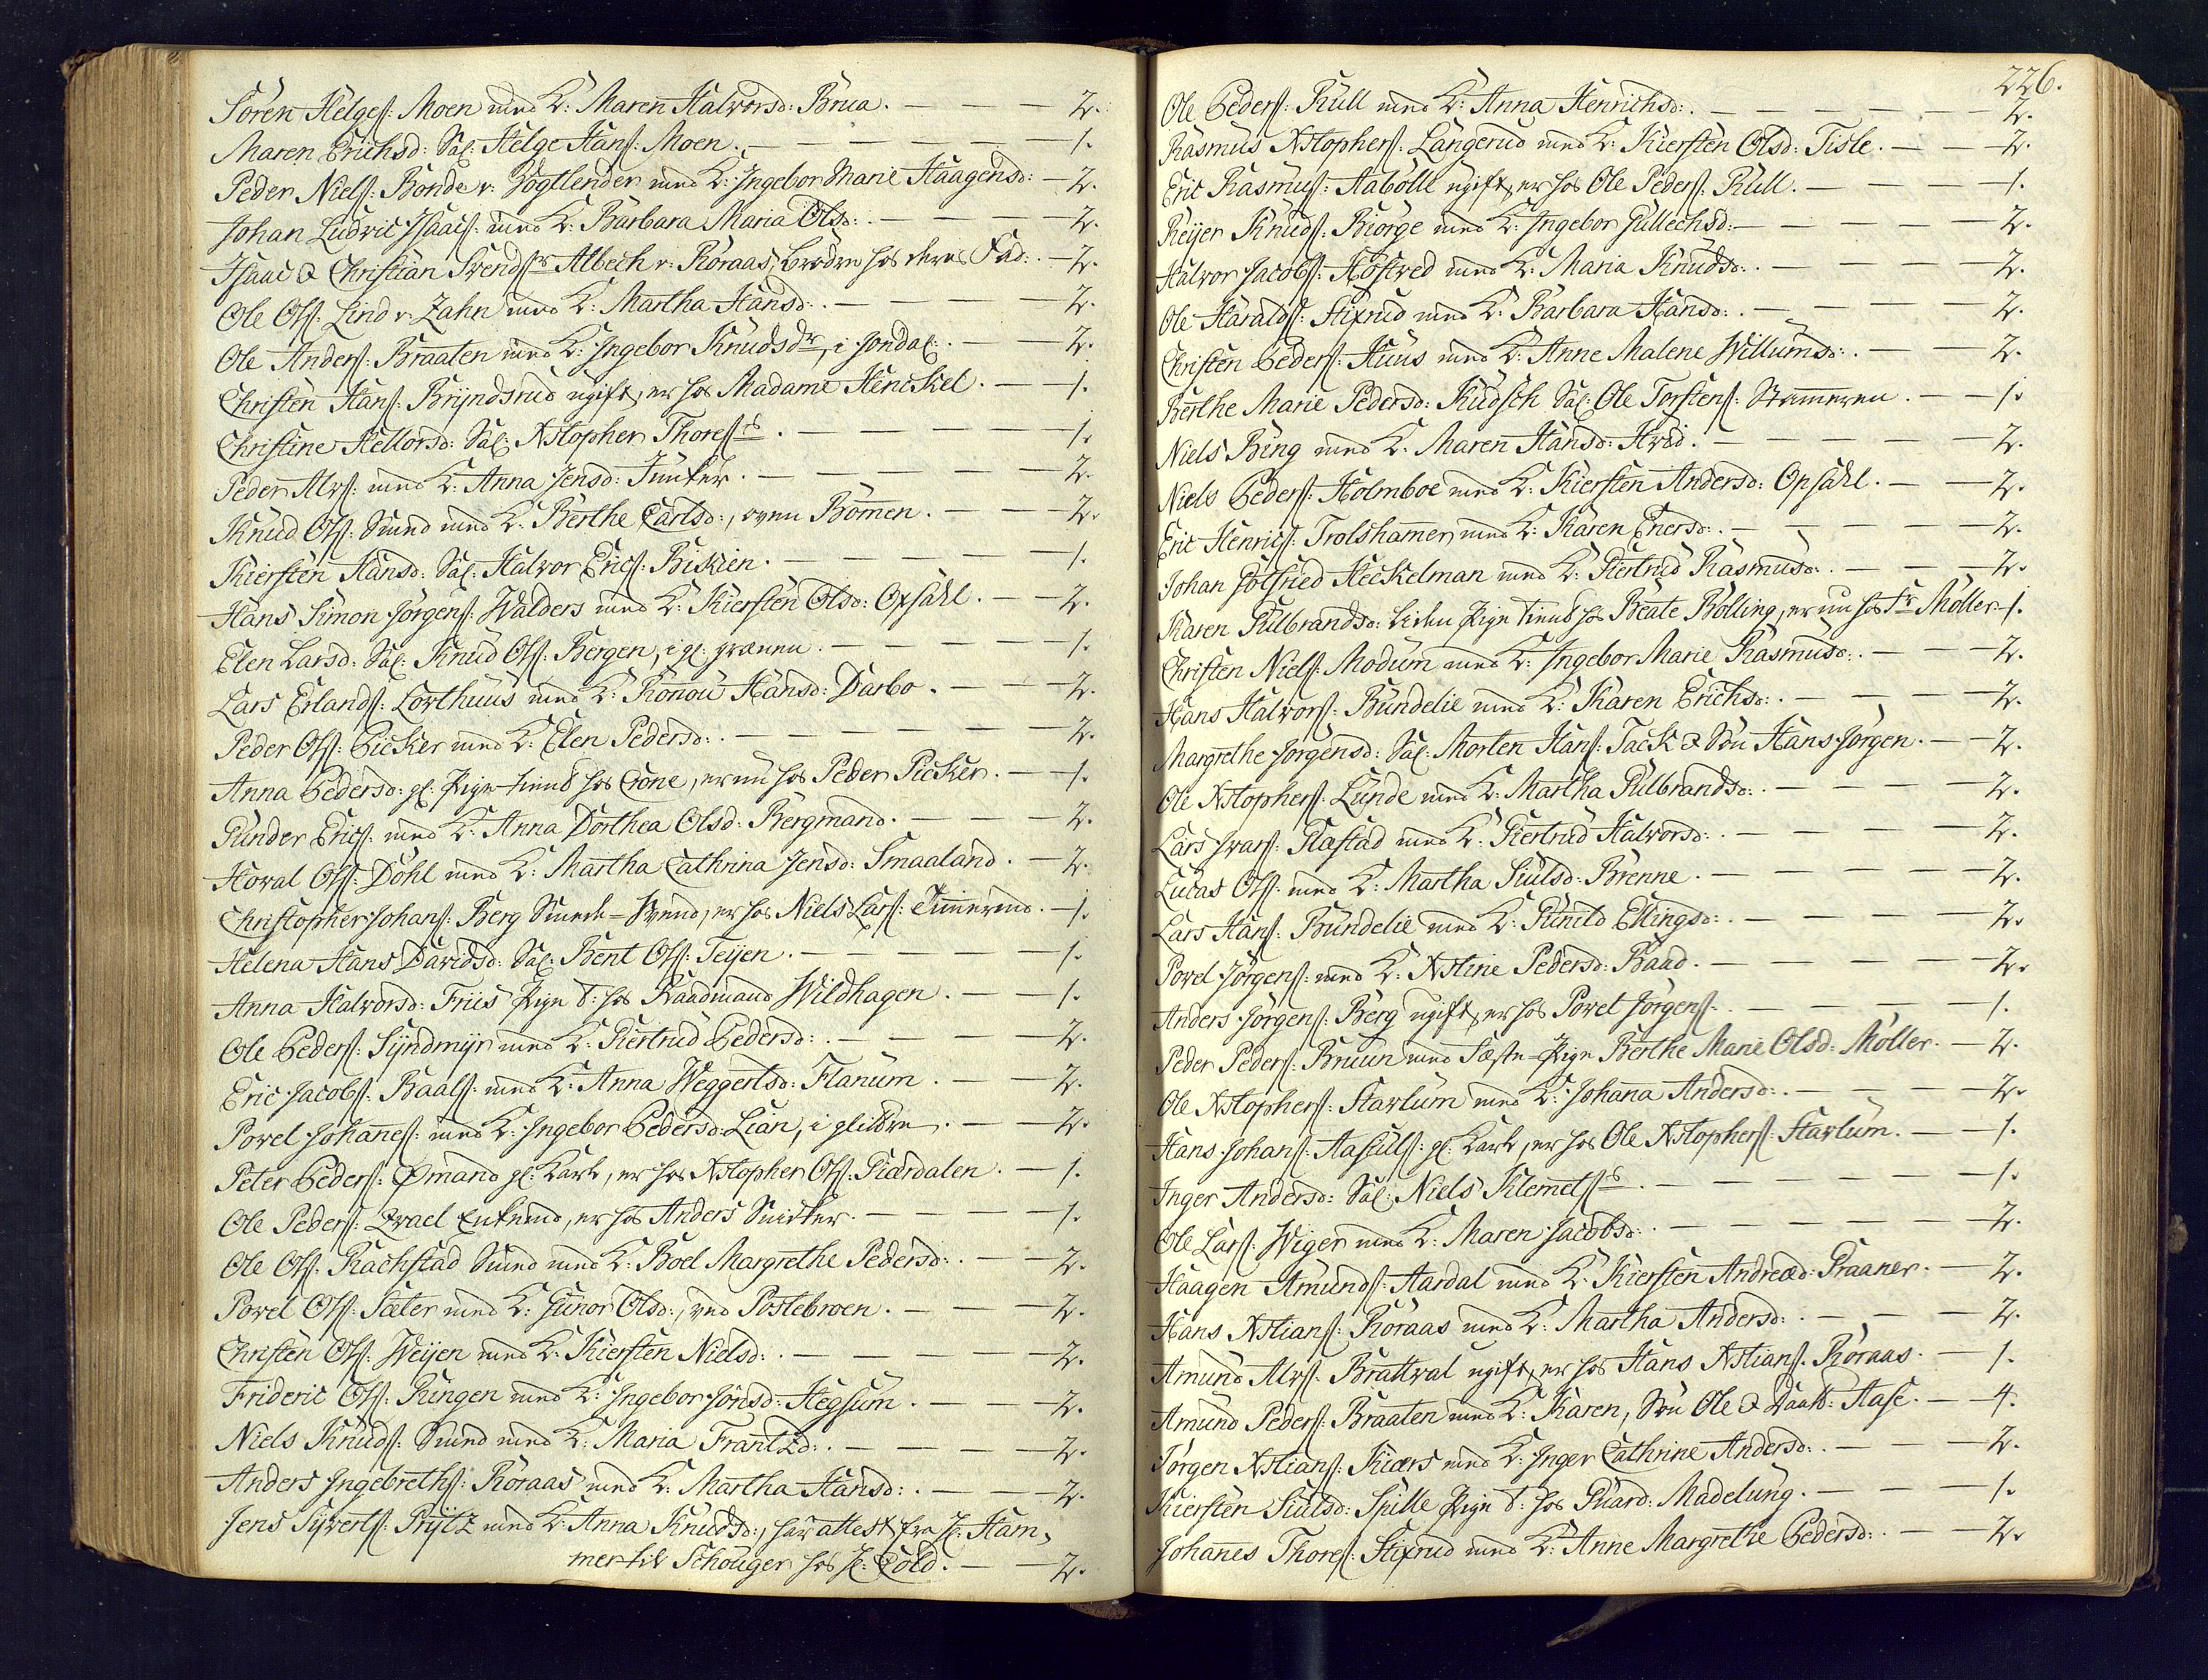 Sören Helges: Moen med K: Maren Halvorsd: Brua. — — 2.
Maren Erichsd: Sal: Helge Hans: Moen. — — — — 1.
Peder Niels: Bonde v: Vogtlender med K: Ingebor Marie Haagensd: — 2.
Johan Ludvic Isaacs: med K: Barbara Maria Olsd: — — — 2.
Isaac & Christian Svends: Albech v: Röraas, brödre hos deres Fad: — 2.
Ole Ols: Lind v: Zahn med K: Martha Hansd: — — — — 2.
Ole Anders: Braaten med K: Ingebor Knudsdr, i Jondal: — — 2.
Christen Hans: Bryndsrud ugift, er hos Madame Henckel. — 1.
Christine Hellorsd: Sal: Xstopher Thores: — — — — 1.
Peder Alvs: med K: Anna Jensd: Junker. — — — — 2.
Knud Ols: Smed med K: Berthe Carlsd:, oven Bommen. — — 2.
Kiersten Hansd: Sal: Halvor Erics: Biskien. — — — — 1.
Hans Simon Jörgens: Walders med K: Kiersten Olsd: Opsahl. — 2.
Elen Larsd: Sal: Knud Ols: Bergen, i gl: — — — 1.
Lars Erlands: Lorthuus med K: Ronou Hansd: Darbo. — — 2.
Peder Ols: Picker med K: Elen Pedersd: — — — — 2.
Anna Pedersd: gl: Pige tient hos Crone, er nu hos Peder Picker. — 1.
Gunder Erics: med K: Anna Dorthea Olsd: Bergmand. — — 2.
Howal Ols: Döhl med K: Martha Cathrina Jensd: Smaaland. — 2.
Christopher Johans: Berg Smede-Svend, er hos Niels Lars: Timermd. — 1.
Helena Hans Davidsd: Sal: Bent Ols: Teyen. — — — — 1.
Anna Halvorsd: Friis Pige t: hos Raadmand Wildhagen. — 1.
Ole Peders: Syndmyr med K: Giertrud Pedersd: — — — 2.
Eric Jacobs: Baals: med K: Anna Weggertsd: Flanum. — — 2.
Povel Johannes: med K: Ingebor Pedersd: Lian, i Glittre. — 2.
Peter Peders: Ømand gl: Karl, er hos Xstopher Ols: Giærdalen. — 1.
Ole Peders: Qvael Enkemd, er hos Anders Snidker. — — 1.
Ole Ols: Rachstad Smed med K: Boel Margrethe Pedersd: — 2.
Povel Ols: Sæter med K: Gunor Olsd:, ved Postebroen. — — 2.
Christen Ols: Weyen med K: Kiersten Nielsd: — — — 2.
Frideric Ols: Ringen med K: Ingebor Jonsd: Hegsum. — — 2.
Niels Knuds: Smed med K: Maria Frantzd: — — — — 2.
Anders Ingebreths: Röraas med K: Martha Hansd: — — — 2.
Jens Syverts: Prytz med K: Anna Knudsd:, har attest fra H: Ham,
mer til Schouger hos H: Cold. — — 2.
226.
Ole Peders: Rull med K: Anna Henrichsd: — — — — 2.
Rasmus Xstophers: Langerud med K: Kiersten Olsd: Tisle. — — 2.
Eric Rasmus: Aabölle ugift, er hos Ole Peders: Rull. — — — 1.
Reyer Knuds: Biörge med K: Ingebor Gullechsd: — — — 2.
Halvor Jacobs: Hostved med K: Maria Knudsd: — — — 2.
Ole Haralds: Stixrud med K: Barbara Hansd: — — — 2.
Christen Peders: Huus med K: Anne Malene Willumsd: — — 2.
Berthe Marie Pedersd: Kudsch Sal: Ole Torstens: Strømmen. — 1.
Niels Bing med K: Maren Hansd: Hvid. — — — — 2.
Niels Peders: Holmboe med K: Kiersten Andersd: Opsahl. — — 2.
Eric Henrics: Trolshamer med K: Karen Enersd: — — — 2.
Johan Gotfried Heckelman med K: Giertrud Rasmusd: — — 2.
Karen Gulbrandsd: liden Pige tient hos Beate Bolling, er nu hos Fr Möller. 1.
Christen Niels: Modum med K: Ingebor Marie Rasmusd: — — 2.
Hans Halvors: Bundelie med K: Karen Erichsd: — — — 2.
Margrethe Jörgensd: Sal: Morten Hans: Tack & Sön Hans Jörgen. — 2.
Ole Xstophers: Lunde med K: Martha Gulbrandsd: — — — 2.
Lars Ivars: Flæstad med K: Giertrud Halvorsd: — — — 2.
Lucas Ols: med K: Martha Siulsd: Brenne. — — — — 2.
Lars Hans: Bundelie med K: Gunild Ellingsd: — — — 2.
Povel Jörgens: med K: Xstine Pedersd: Baad. — — — — 2.
Anders Jörgens: Berg ugift, er hos Povel Jörgens: — — — 1.
Peder Peders: Bruun med Fæste-Pige Berthe Marie Olsd: Möller. — 2.
Ole Xstophers: Starlum med K: Johana Andersd: — — — 2.
Hans Johans: Aaseuls: gl: Karl, er hos Ole Xstophers: Starlum. — 1.
Inger Andersd: Sal: Niels Klemets: — — — — — 1.
Ole Lars: Wiger med K: Maren Jacobsd: — — — — 2.
Haagen Amunds: Aardal med K: Kiersten Andreæd: Praaner. — 2.
Hans Xstians: Röraas med K: Martha Andersd: — — — 2.
Amund Alvs: Brattval ugift, er hos Hans Xstians: Röraas. — 1.
Amund Peders: Braaten med K: Karen, Sön Ole & Daatt: Aase. — 4.
Jörgen Xstians: Kiærs med K: Inger Cathrine Andersd: — — 2.
Kiersten Siulsd: Spille Pige t: hos Guard: Madelung. — — 1.
Johanes Thores: Stixrud med K: Anne Margrethe Pedersd: — — 2.